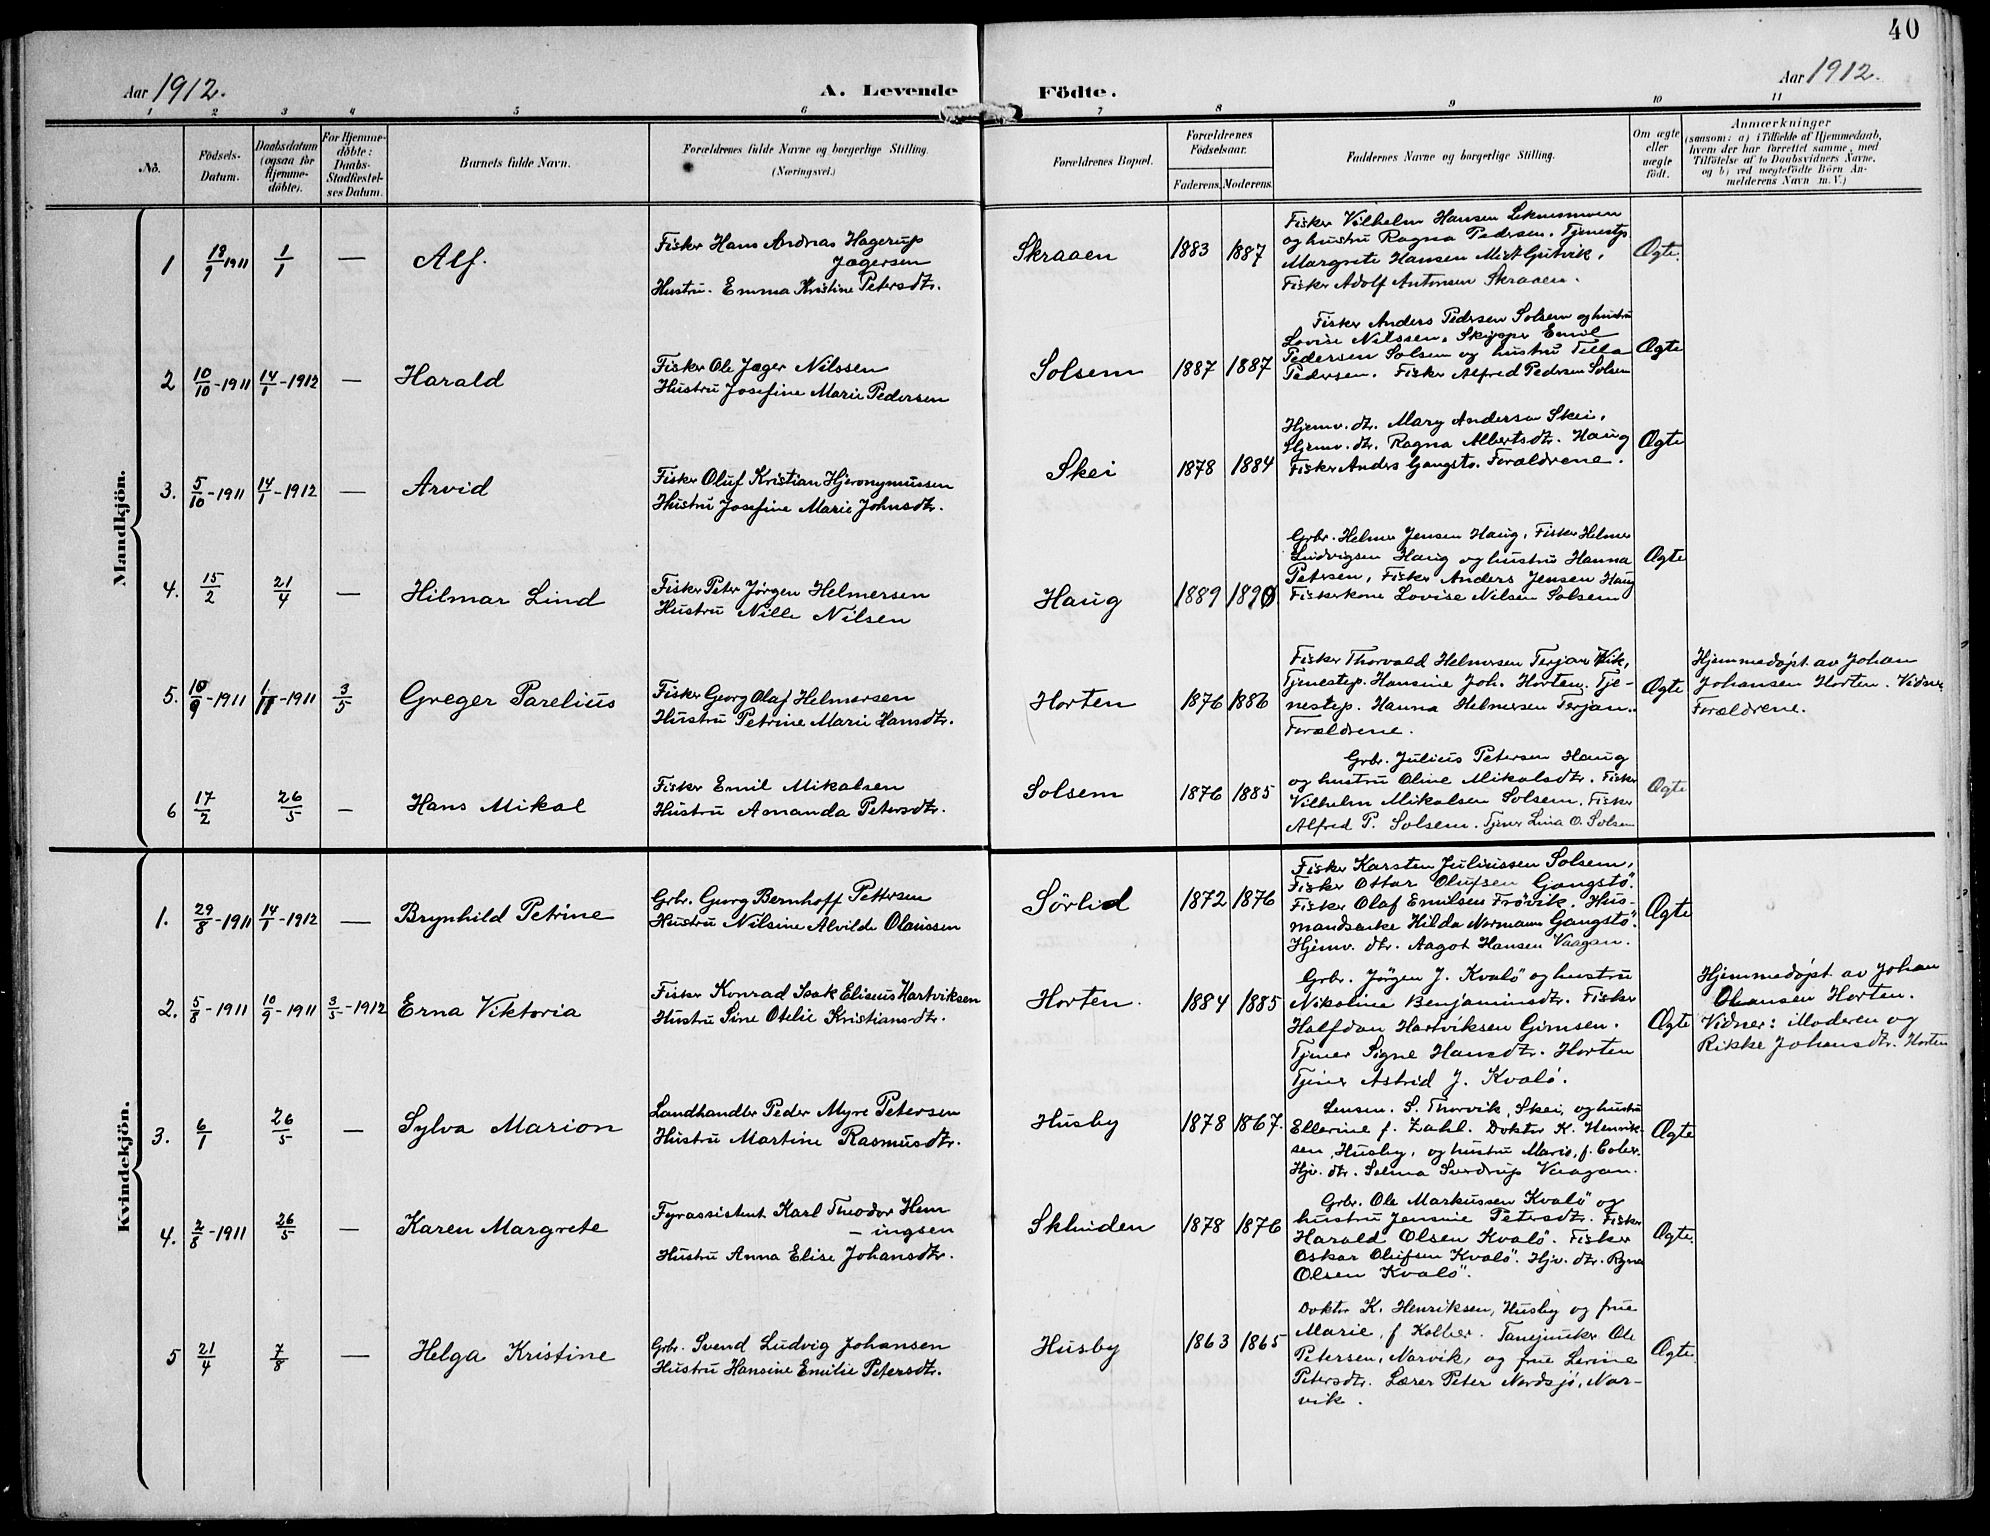 40
Aar 1912.
A. Levende Födte.
Aar 1912.
1 2 3 4 5 6 7 8 9 10 11
No.
Födsels-
Datum.
Daabsdatum
(ogsaa for
Hjemme-
döbte).
For Hjemme-
döbte:
Daabs-
Stadfæstel-
ses Datum.
Barnets fulde Navn.
Forældrenes fulde Navne og borgerlige Stilling.
(Næringsvei.)
Forældrenes Bopæl.
Forældrenes
Födselsaar.
Faderens. Moderens.
Faddernes Navne og borgerlige Stilling.
Om ægte
eller
uægte
födt.
Anmærkninger
(saasom: a) i Tilfælde af Hjemmedaab,
hvem der har forrettet samme, med
Tilföielse af to Daabsvidners Navne,
og b) ved uægtefödte Börn An-
melderens Navn m. V.)
Mandkjön.
1 18/9 1911 1/1 — Alf.
Fisker Hans Andreas Hagerup
Jægersen
Hustru. Emma Kristine Petersdtr.
Skraaen 1883 1887
Fisker Vilhelm Hansen
og hustru Ragna Pedersen. Tjenestp.
Margrete Hansen Midt Gutvik.
Fisker Adolf Antonsen Skraaen.
Ægte.
2 10/10-1911 14/1-1912 — Harald
Fisker Ole Jæger Nilssen
Hustru Josefine Marie Pedersen
Solsem 1887 1887
Fisker Anders Pedersen Solsem og hustru
Lovise Nilssen. Skipper Emil
Pedersen Solsem og hustru Tella
Pedersen. Fisker Alfred Pedersen Solsem
Ægte
3. 5/10-1911 14/1-1912 — Arvid
Fisker Oluf Kristian Hjeronymussen
Hustru Josefine Marie Johnsdtr.
Skei 1878 1884
Hjemv. dtr. Mary Anderson Skei,
Hjemv. dtr. Ragna Albertsdtr. Haug
Fisker Anders Gangstö. Forældrene.
Ægte
4. 15/2 21/4 — Hilmar Lind
Fisker Peter Jörgen Helmersen
Hustru Nille Nilsen
Haug 1889 1890
Grbr. Helmer Jensen Haug, Fisker Helmer
Ludvigsen Haug og hustru Hanna
Petersen, Fisker Anders Jensen Haug
Fiskerkone Lovise Nilsen Solsem
Ægte
5. 10/9-1911 1/11-1911 3/5 Greger Parelius
Fisker Georg Olaf Helmersen
Hustru Petrine Marie Hansdtr.
Horten 1876 1886
Fisker Thorvald Helmersen Terjan Vik,
Tjenestep. Hansine Joh. Horten. Tje-
nestep. Hanna Helmersen Terjan.
Forældrene.
Ægte
Hjemmedöpt av Johan
Johansen Horten. Vidner
Forældrene.
6 17/2 26/5 — Hans Mikal
Fisker Emil Mikalsen
Hustru Amanda Petersdtr.
Solsem 1876 1885
Grbr. Julius Petersen Haug
og hustru Oline Mikalsdtr. Fisker
Vilhelm Mikalsen Solsem. Fisker
Alfred P. Solsem. Tjener Lina O. Solsem
Ægte
Kvindekjön.
1. 29/8-1911 14/1-1912 — Brynhild Petrine
Grbr. Georg Bernhoff Pettersen
Hustru Nilsine Alvilde Olaussen
Sörlid 1872 1876
Fisker Karsten Juliussen Solsem,
Fisker Ottar Olufsen Gangstö.
Fisker Olaf Emilsen Frövik. Hus-
mandsenke Hilda Normann Gangstö.
Hjemv. dtr. Aagot Hansen Vaagan.
Ægte
2. 5/8-1911 10/9-1911 3/5-1912 Erna Viktoria
Fisker Konrad Isak Eliseus Hartviksen
Hustru Sine Otelie Kristiansdtr.
Horten. 1884 1885
Grbr. Jörgen J. Kvalö og hustru
Nikoline Benjaminsdtr. Fisker
Halfdan Hartviksen Gimsen.
Tjener Signe Hansdtr. Horten
Tjener Astrid J. Kvalö.
Ægte
Hjemmedöpt av Johan
Johansen Horten.
Vidner: Moderen og
Rikke Johansdtr. Horten
3. 6/1 26/5 — Sylva Marion
Landhandler Peder Myre Petersen
Hustru Martine Rasmusdtr.
Husby 1878 1867.
Lensm. S. Thorvik, Skei, og hustru
Ellerine f. Zahl. Doktor K. Henrik-
sen, Husby, og hustru Marie, f.
Hjv. dtr. Selma Sverdrup Vaagan.
Ægte
4. 2/8-1911 26/5 — Karen Margrete
Fyrassistent Karl Theodor Hem
— ingsen
Hustru Anna Elise Johansdtr.
Sklinden 1878 1876
Grbr. Ole Markussen Kvalö og
hustru Jensine Petersdtr. Fisker
Harald Olsen Kvalö. Fisker
Oskar Olufsen Kvalö. Hjv. dtr. Ragna
Olsen Kvalö.
Ægte.
5 21/4 7/8 — Helga Kristine
Grbr. Svend Ludvig Johansen
Hustru Hansine Emilie Petersdtr.
Husby 1863 1865
Doktor K. Henriksen, Husby og frue
Marie, f. Kolber. Ole
Petersen, Narvik, og frue Lerine
Petersdtr. Lærer Peter Nordsjö, Nar-
vik.
Ægte.